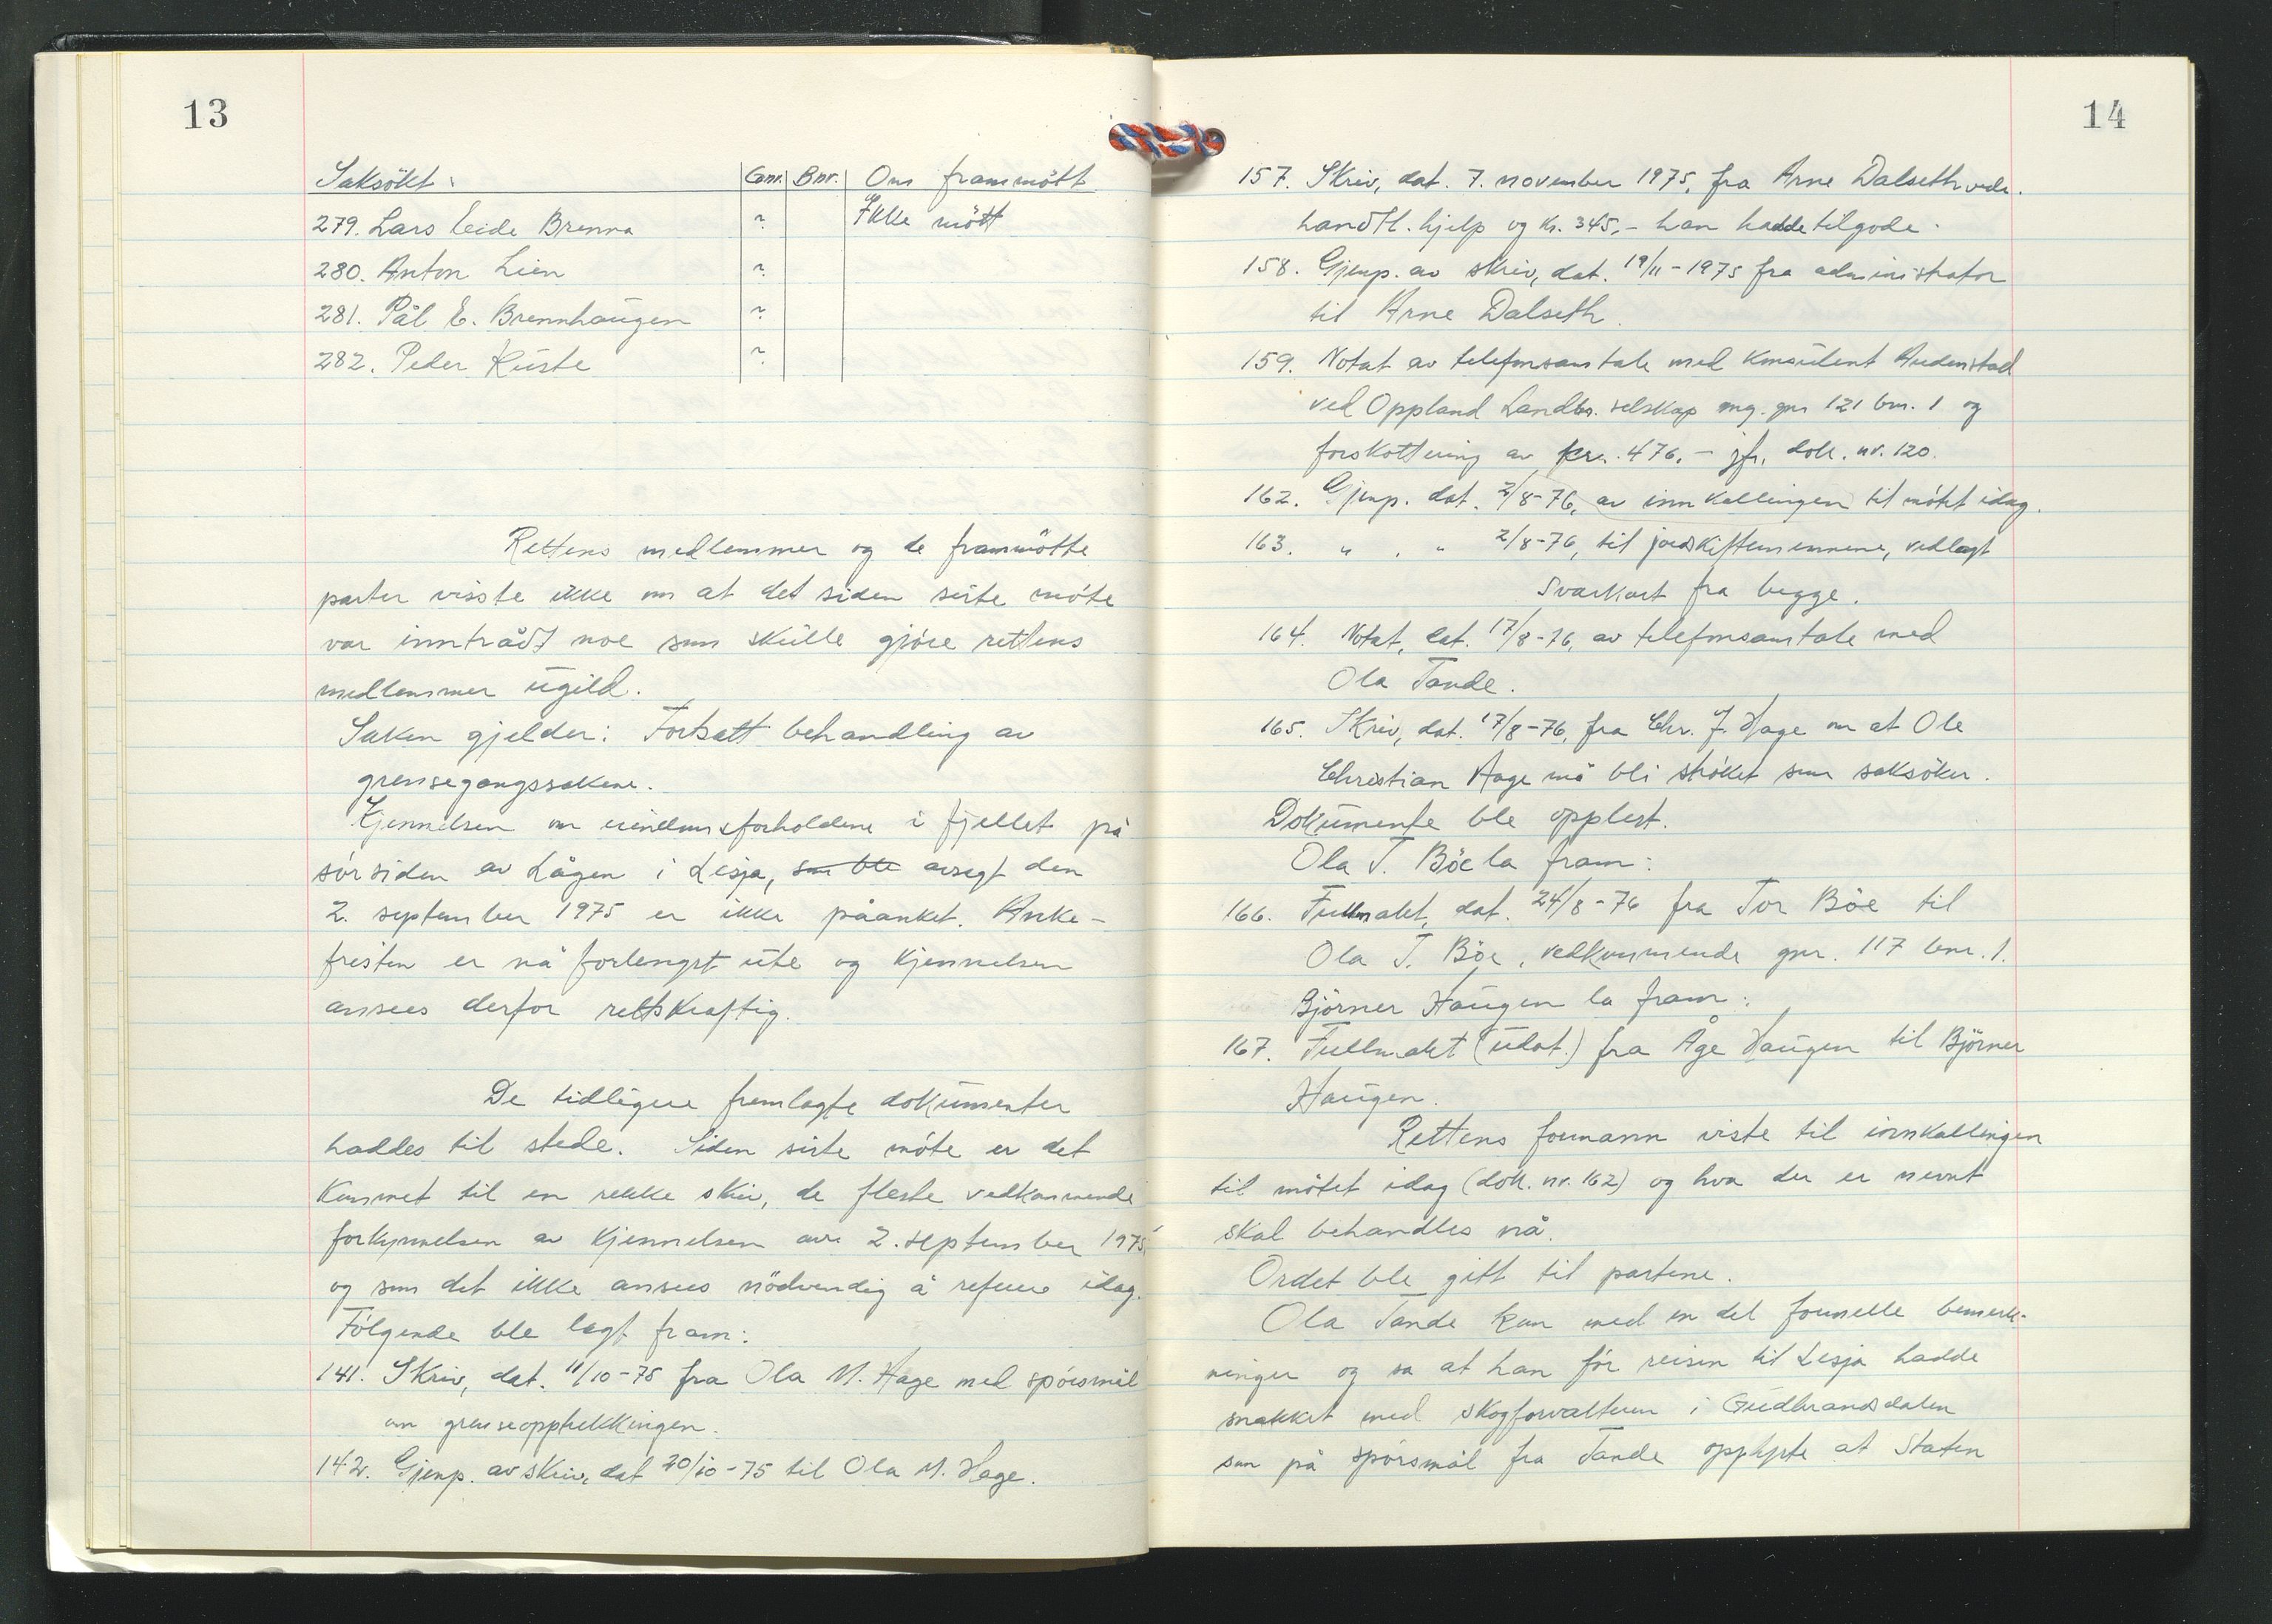 13
Saksökt: Gnr. Bnr. Om frammött
279. Lars Eide Brenna ? Ikke mött
280. Anton Lien ?
281. Pål E. Brennhaugen ?
282. Peder Kuste ?
Rettens medlemmer og de frammötte
parter visste ikke om at det siden siste möte
var inntrådt noe som skulle gjöre rettens
medlemmer ugild.
Saken gjelder: Fortsatt behandling av
grensegangssakene.
Kjennelsen om eiendomsforholdene i fjellet på
sörsiden av Lågen i Lesja, som ble avsagt den
2. september 1975 er ikke påanket. Anke-
fristen er nå forlengst ute og kjennelsen
ansees derfor rettskraftig.
De tidligere fremlagte dokumenter
haddes til stede. Siden siste möte er det
kommet til en rekke skriv, de fleste vedkommende
forkynnelsen av kjennelsen av 2. september 1975
og som det ikke ansees nödvendig å referere idag.
Fölgende ble lagt fram:
141. Skriv, dat. 11/10-75 fra Ola M. Hage med spörsmål
om grenseopptrekkingen.
142. Gjenp. av skriv, dat 20/10-75 til Ola M. Hage.
14
157. Skriv, dat. 7. november 1975, fra Arne Dalseth vedr.
handtl. hjelp og kr. 345,- han hadde tilgode.
158. Gjenp. av skriv, dat. 19/11-1975 fra administrator
til Arne Dalseth.
159. Notat av telefonsamtale med konsulent Audenstad
ved Oppland Landbr. selskap ang. gnr 121 bnr. 1 og
forskottering av kr. 476,- jfr. dok. nr. 120.
162. Gjenp. dat. 2/8-76, av innkallingen til mötet idag.
163. " . " 2/8-76, til jordskiftemennene, vedlagt
Svarkort fra begge.
164. Notat, dat. 17/8-76, av telefonsamtale med
Ola Tande.
165. Skriv, dat. 17/8-76, fra Chr. J. Hage om at Ole
Christian Hage må bli ströket som saksöker.
Dokumente ble opplest.
Ola T. Böe la fram:
166. Fullmakt, dat. 24/8-76 fra Tor Böe til
Ola T. Böe, vedkommende gnr. 117 bnr. 1.
Björner Haugen la fram:
167. Fullmakt (udat.) fra Åge Haugen til Björner
Haugen.
Rettens formann viste til innkallingen
til mötet idag (dok. nr. 162) og hva der er nevnt
skal behandles nå.
Ordet ble gitt til partene.
Ola Tande kom med en del formelle bemerk-
ninger og sa at han för reisen til Lesja hadde
snakket med skogforvalteren i Gudbrandsdalen
som på spörsmål fra Tande opplyste at Staten